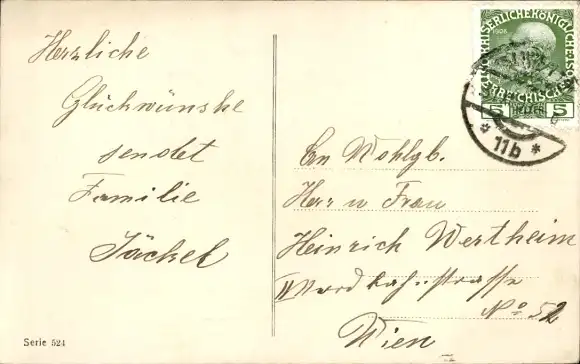 Herzliche
Glückwünshe
sendet
Familie
Jäckel
Serie 524
KAISERLICHE KÖNIGLICHE
ÖSTERREICHISCHE
1908
5 HELLER 5
* 11b *
En Wohlgb.
Herr u Frau
Heinrich Wertheim
II Nordbahnstrasse
No 52
Wien